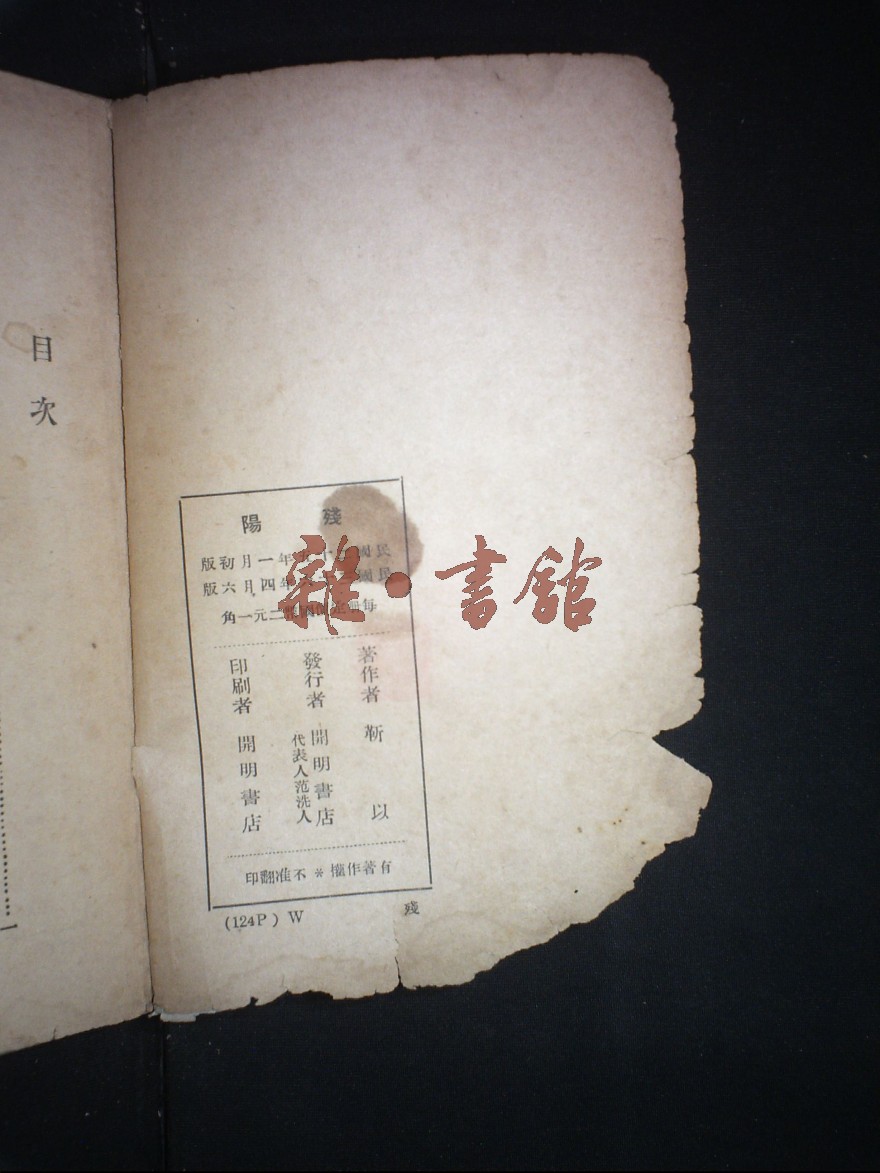 目次
殘陽
民國 十 年一月初版
民國 年四月六版
每冊 二元一角
著作者 靳以
發行者 開明書店
代表人范洗人
印刷者 開明書店
有著作權*不准翻印
(124P) W
殘
雜·書館